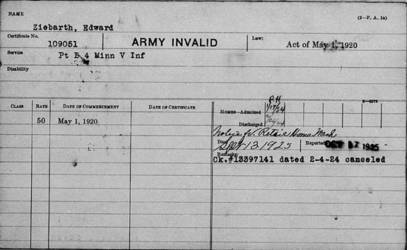 NAME
Ziebarth, Edward
(3-F. A. 14)
Certificate No.
109051
ARMY INVALID
Law:
Act of May 1, 1920
Service
Pt B 4 Minn V Inf
Disability
CLASS RATE DATE OF COMMENCEMENT DATE OF CERTIFICATE
HOMES—Admitted
Discharged
50 May 1, 1920
Died
SEP 13 1925
Reported
OCT 1925
Remarks
Ck.#13397141 dated 2-4-24 canceled